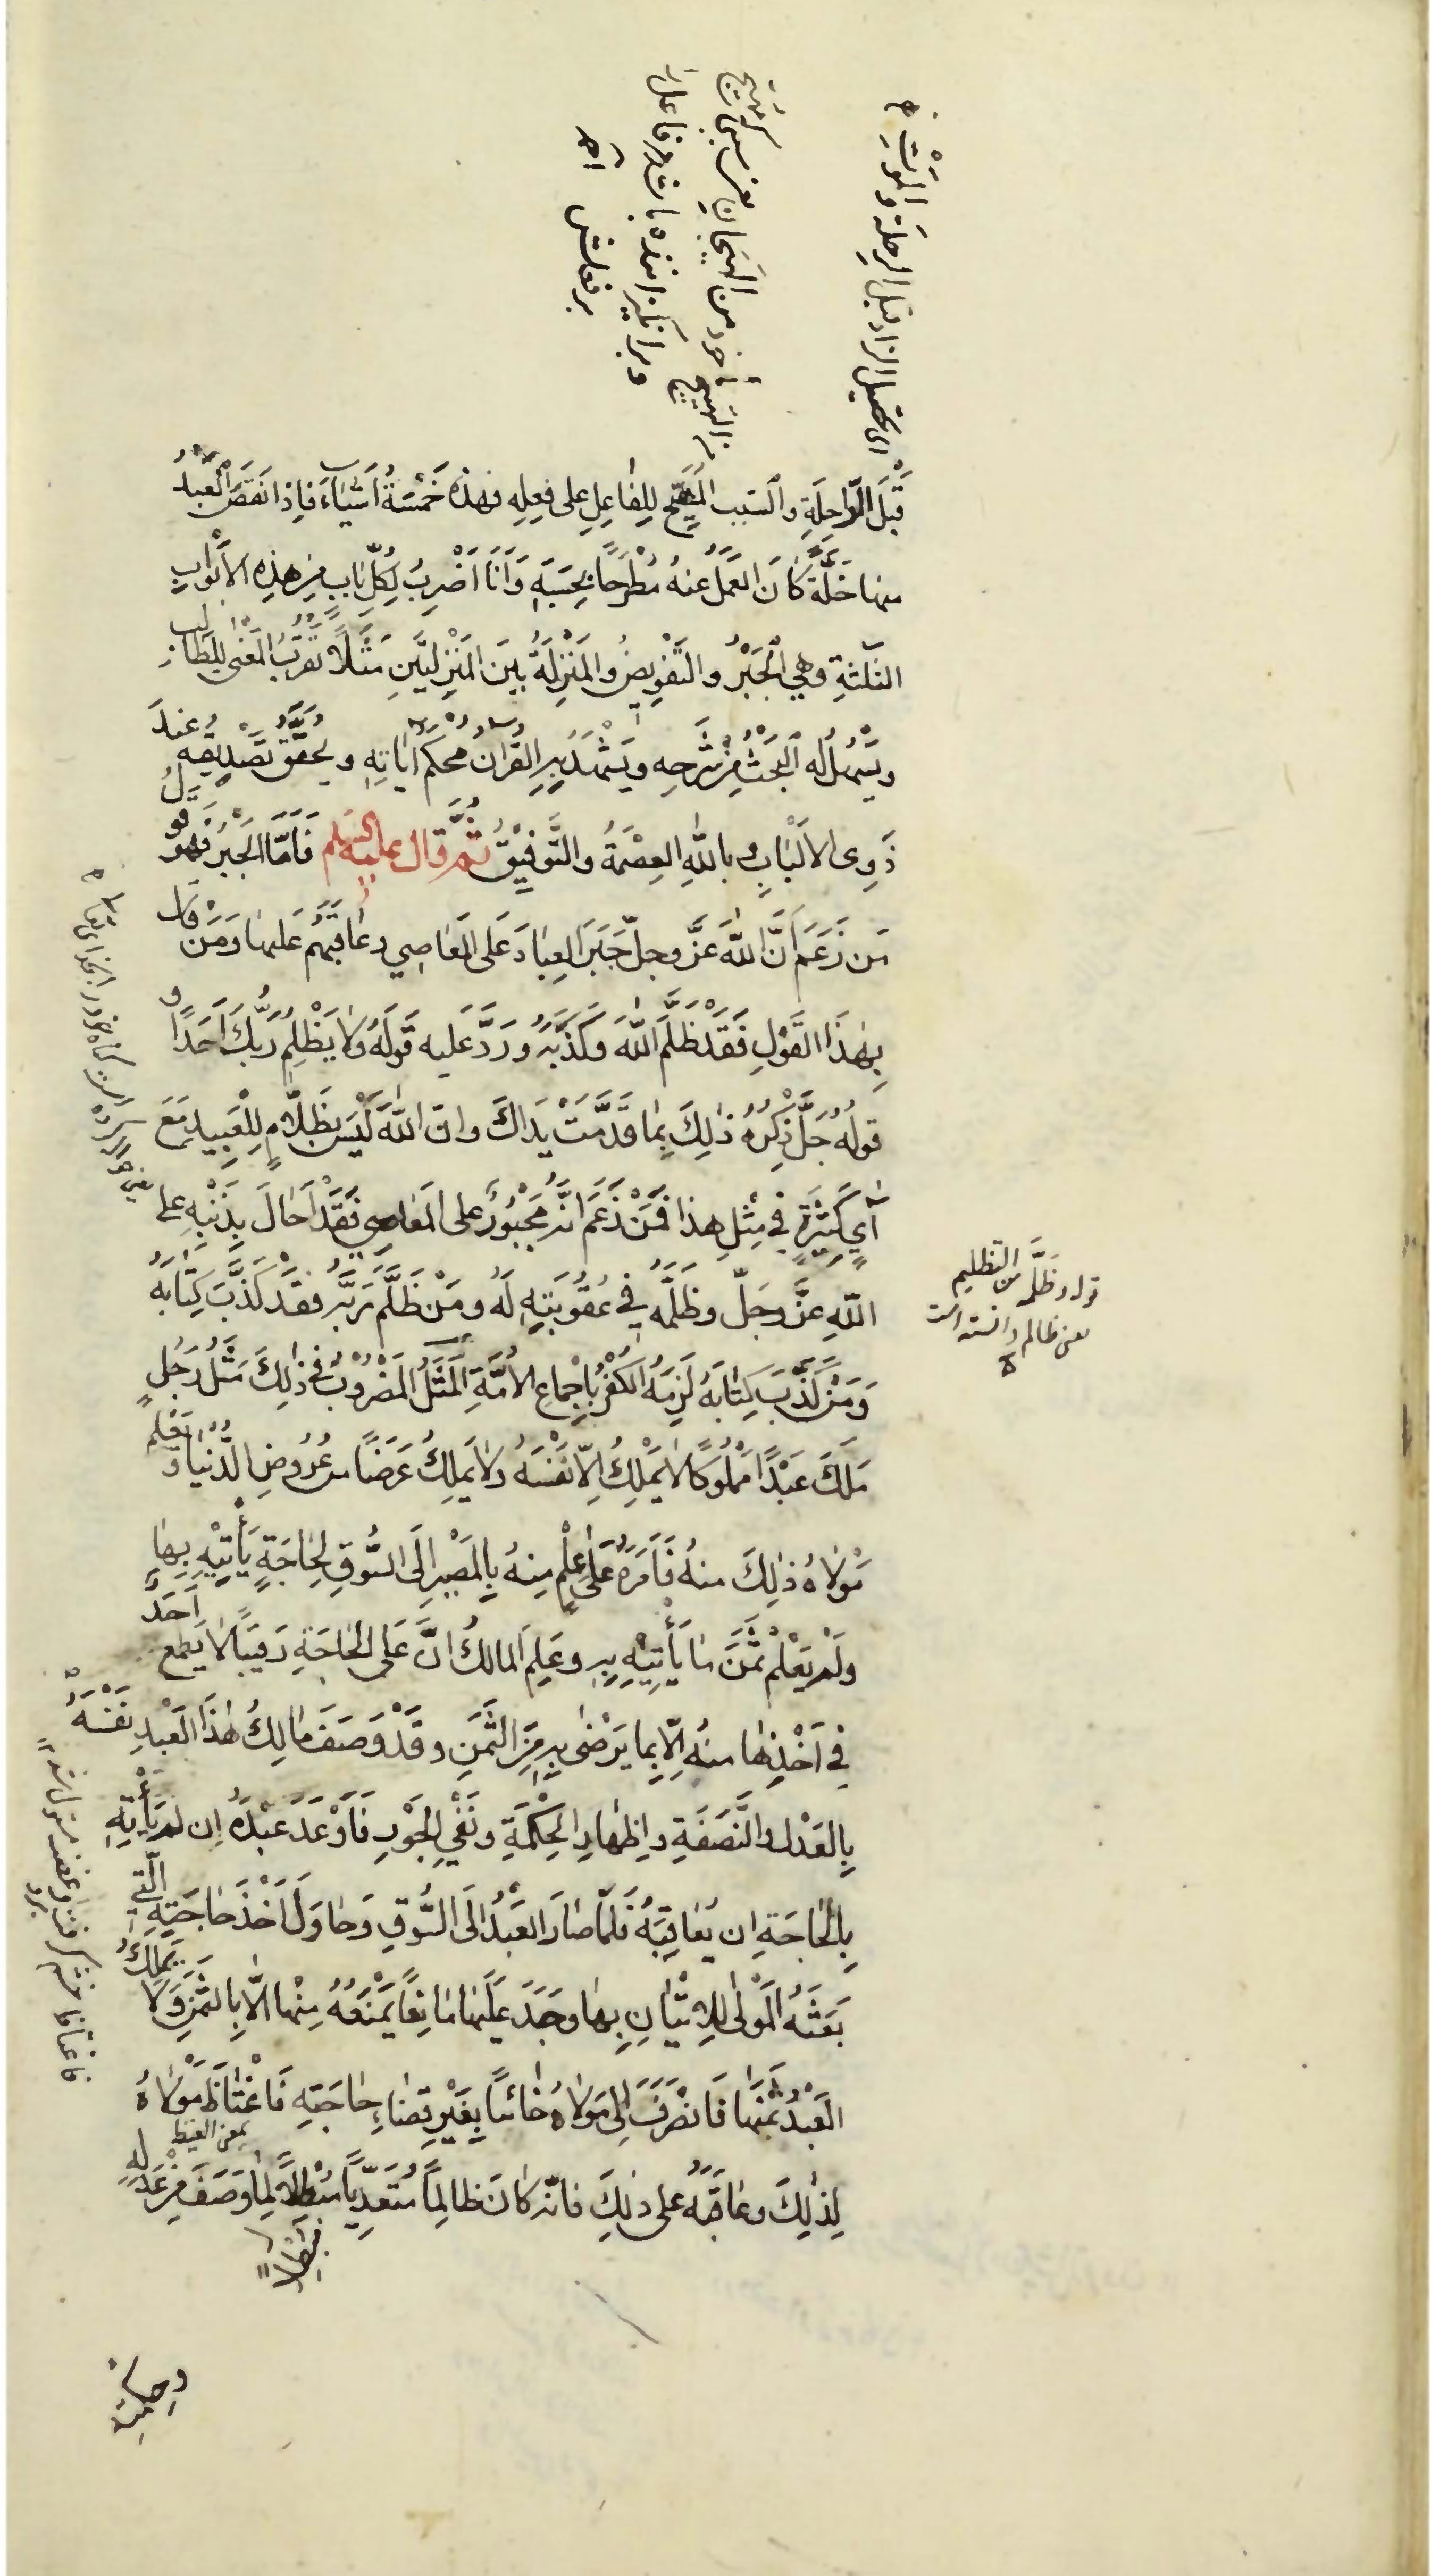 اى تحصيل الزاد قبل الرحلة والموت
من التهييج مأخوذ من الهيجان يعنى سببها كه تهييج
و برانگيزاننده باشد مر فاعل را
بر فعلش
قَبْلَ الرَّاحِلَةِ والسَّبَبِ المُهَيِّجِ لِلفَاعِلِ على فِعلِهِ فهذه خَمْسَةُ اَشْيَاءَ فَاِذا نَقَصَ الْعَبْدُ
منها خَلَّةً كَانَ العَمَلُ عنهُ مُطْرَحًا بِحَسَبِهِ وَاَنَا اَضْرِبُ لِكُلِّ بَابٍ مِن هَذِهِ الاَبْوابِ
الثلثةِ وهي الْجَبْرُ والتَّفْوِيضُ والمَنْزِلَةُ بَينَ المَنْزِلَتَينِ مَثَلًا يُقَرِّبُ المَعْنى لِلطَّالِبِ
ويَسْهُلُ لَه البَحْثُ مِن شَرْحِهِ ويَشْهَدُ بِهِ القُرْانُ بمُحْكَمِ اٰيَاتِهِ ويُحَقِّقُ تَصْدِيقَهُ عِندَ
ذَوِى الاَلْبَابِ وبِاللّٰهِ العِصْمَةُ والتَّوفِيْقُ ثُمَّ قال عليه السلام فَاَمَّا الْجَبْرُ فَهُوَ قَوْلُ
مَن زَعَمَ اَنَّ اللّٰهَ عَزَّ وجلّ جَبَرَ العِبَادَ عَلَى المَعَاصِي وعَاقَبَهُم عَلَيهَا وَمَنْ قَالَ
بِهٰذَا القَوْلِ فَقَدْ ظَلَّمَ اللّٰهَ وَكَذَّبَهُ وَرَدَّ عَليه قَولَهُ وَلا يَظْلِمُ رَبُّكَ اَحَدًا و
قولُهُ جَلَّ ذِكْرُهُ ذٰلِكَ بِمَا قَدَّمَتْ يَدَاكَ وان اللّٰهَ لَيْسَ بِظَلَّامٍ لِلْعَبِيدِ مَعَ
اٰيٍ كَثِيْرَةٍ فى مِثلِ هذا فَمَنْ زَعَمَ اَنَّه مَجْبُورٌ على المَعَاصِي فَقَدْ اَحَالَ بِذَنْبِهِ على
اللّٰهِ عَزَّ وجَلّ وظَلَّمَهُ فِي عُقُوبَتِهِ لَهُ ومَنْ ظَلَّمَ رَبَّهُ فَقَدْ كَذَّبَ كِتَابَهُ
وَمَنْ كَذَّبَ كِتَابَهُ لَزِمَهُ الكُفْرُ بِاِجْمَاعِ الاُمَّةِ المَثَلُ المَضْرُوبُ فى ذٰلِكَ مَثَلُ رَجُلٍ
مَلَكَ عَبْدًا مَمْلُوكًا لا يَمْلِكُ اِلّا نَفْسَهُ ولا يَملِكُ عَرَضًا من عُرُوضِ الدُّنْيَا وَيَعْلَمُ
مَوْلَاهُ ذٰلِكَ منهُ فَاَمَرَهُ عَلٰى عِلْمٍ مِنهُ بِالمَصِيرِ اِلَى السُّوقِ لِحَاجَةٍ يَأْتِيْهِ بِهَا
ولَمْ يَعْلَمْ ثَمَنَ مَا يَأْتِيْهِ بِهِ وعَلِمَ المالِكُ انَّ عَلى الحَاجَةِ رَقِيبًا لا يَطمَع اَحَدٌ
فى اَخْذِهَا منهُ اِلَّا بِما يَرْضٰى بِهِ مِنَ الثَّمَنِ وقَدْ وَصَفَ مَالِكُ هٰذَا العَبْدِ نَفْسَهُ
بِالعَدْلِ والنَّصَفَةِ واِظْهَارِ الحِكْمَةِ ونَفْيِ الجَوْرِ فَاَوْعَدَ عَبْدَهُ اِن لم يَأْتِهِ
بِالحَاجَةِ ان يُعَاقِبَهُ فَلَمَّا صَارَ العَبْدُ الَى السُّوقِ وَحَاوَلَ اَخْذَ حَاجَتِهِ الَّتِي
بَعَثَهُ المَوْلٰى لِلاِتْيَانِ بِهَا وجَدَ عَلَيْهَا مَانِعًا يَمْنَعُهُ مِنْها الَّا بِالثَّمَنِ وَلَا يَمْلِكُ
العَبْدُ ثَمَنَهَا فَانْصَرَفَ اِلى مَوْلَاهُ خَائِبًا بِغَيْرِ قَضَاءِ حَاجَتِهِ فَاغْتَاظَ مَوْلَاهُ
بمعنى الغيظ
لِذٰلِكَ وعَاقَبَهُ على ذٰلِكَ فانّه كَانَ ظَالِمًا مُتَعَدِّيًا مُبْطِلًا لِمَا وَصَفَ مِنْ عَدْلِهِ
مُبْطِلًا
وحكمته
قوله وظلَّمه من التظليم
يعنى ظالم دانسته است